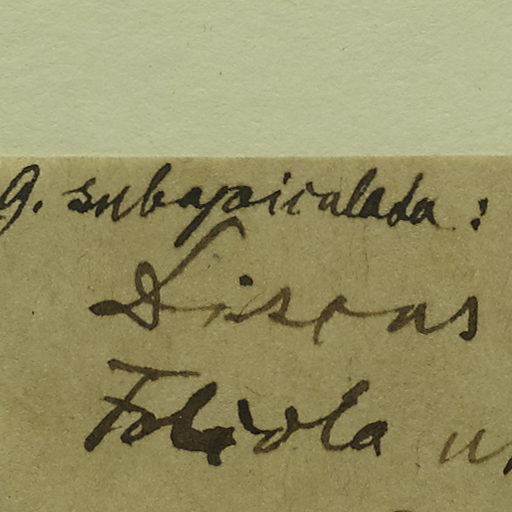 g. subapiculata :
Discus
Foliola